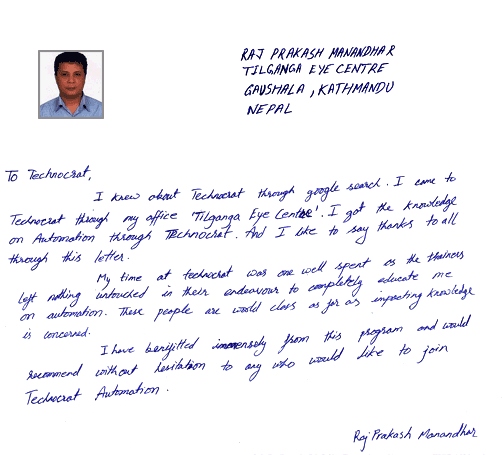 RAJ PRAKASH MANANDHAR
TILGANGA EYE CENTRE
GAUSHALA, KATHMANDU
NEPAL
To Technocrat,
I knew about Technocrat through google search. I came to
Technocrat through my office 'Tilganga Eye Centre'. I got the knowledge
on Automation through Technocrat. And I like to say thanks to all
through this letter.
My time at technocrat was one well spent as the thainers
left nothing untouched in their endeavour to completely educate me
on automation. These people are would class as far as impacting knowledge
is concerned.
I have benifitted immensely from this program and would
recommend without hesitation to any who would like to join
Technocrat Automation.
Raj Prakash Manandhar